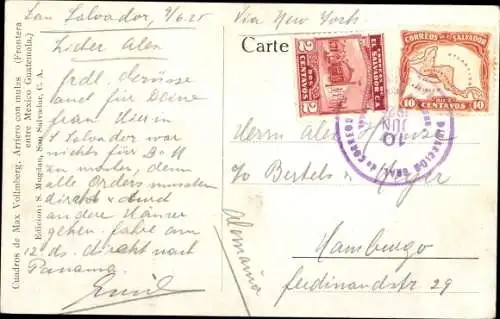 San Salvador, 9/6.25
Via New York
Lieber Alex
frdl. Grüsse
und für Deine
Frau. Hier in
S Salvador war
nichts für D. H
zu machen, denn
alle Orders mussten
direkt + durch
andere Häuser
gehen. fahre am
12. ds. direkt nach
Panama.
Emil
Cuadros de Max Vollmberg. Arriero con mulas (Frontera
entre Mexico Guatemala.)
Edicion: S. Mugdan, San Salvador, C. A.
Carte
CORREOS DE
EL SALVADOR C.A.
DOS
2 CENTAVOS 2
CORREOS DE EL SALVADOR
DIEZ
10 CENTAVOS 10
DIRECCION
GRAL. de CORREOS
10
JUN
Herrn Alex
c/o Bertels &
Hamburgo
Ferdinandstr 29
Alemania